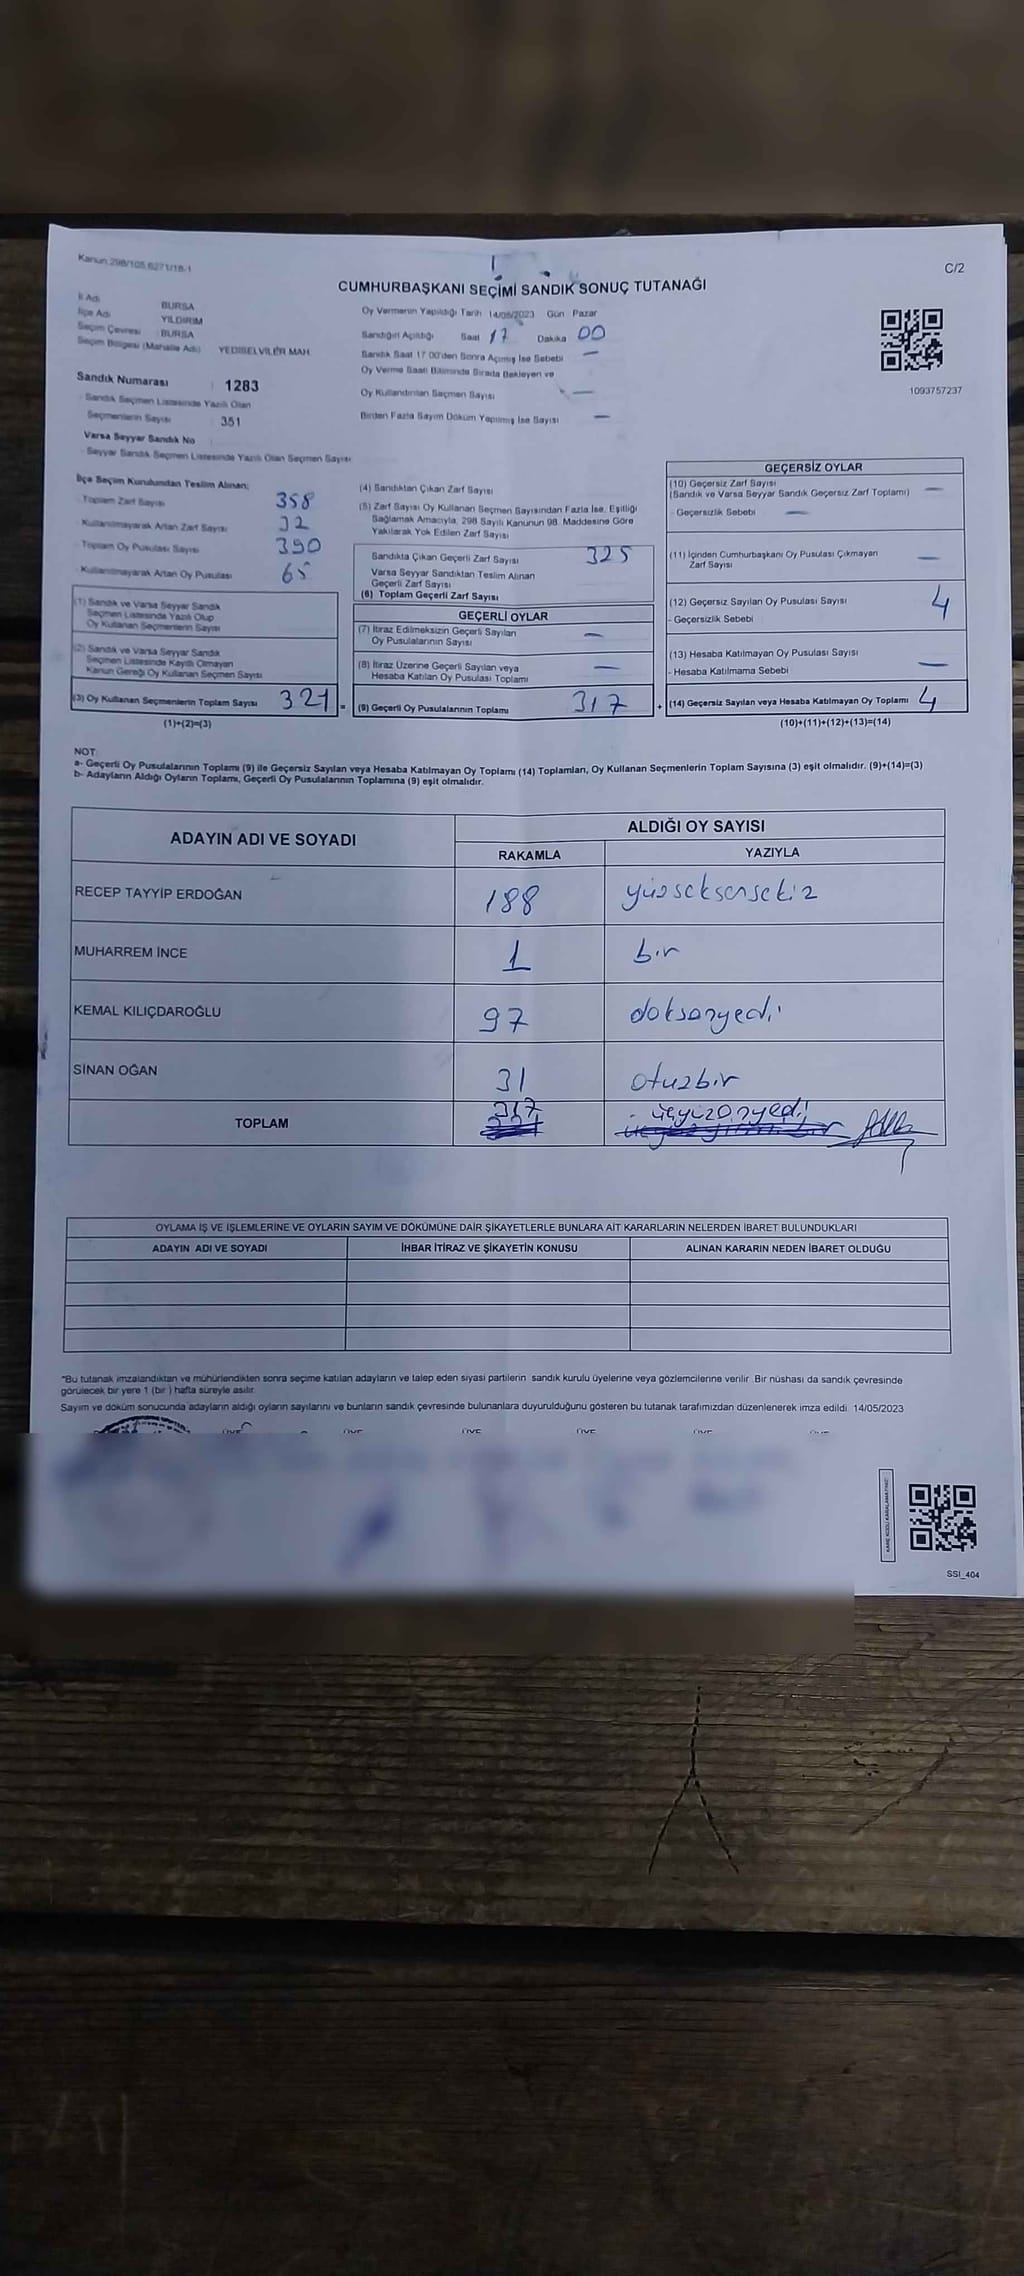 Kanun:298/105,6271/18-1
C/2
CUMHURBAŞKANI SEÇİMİ SANDIK SONUÇ TUTANAĞI
İl Adı BURSA
İlçe Adı YILDIRIM
Seçim Çevresi BURSA
Seçim Bölgesi (Mahalle Adı) YEDİSELVİLER MAH.
Sandık Numarası : 1283
- Sandık Seçmen Listesinde Yazılı Olan
Seçmenlerin Sayısı : 351
Varsa Seyyar Sandık No
- Seyyar Sandık Seçmen Listesinde Yazılı Olan Seçmen Sayısı
Oy Vermenin Yapıldığı Tarih 14/05/2023 Gün Pazar
Sandığın Açıldığı Saat 17 Dakika 00
Sandık Saat 17.00'den Sonra Açılmış İse Sebebi —
Oy Verme Saati Bitiminde Sırada Bekleyen ve
Oy Kullandırılan Seçmen Sayısı —
Birden Fazla Sayım Döküm Yapılmış İse Sayısı —
1093757237
İlçe Seçim Kurulundan Teslim Alınan;
- Toplam Zarf Sayısı 358
- Kullanılmayarak Artan Zarf Sayısı 32
- Toplam Oy Pusulası Sayısı 390
- Kullanılmayarak Artan Oy Pusulası 65
(1) Sandık ve Varsa Seyyar Sandık
Seçmen Listesinde Yazılı Olup
Oy Kullanan Seçmenlerin Sayısı
(2) Sandık ve Varsa Seyyar Sandık
Seçmen Listesinde Kayıtlı Olmayan
Kanun Gereği Oy Kullanan Seçmen Sayısı
(3) Oy Kullanan Seçmenlerin Toplam Sayısı 321 =
(1)+(2)=(3)
(4) Sandıktan Çıkan Zarf Sayısı
(5) Zarf Sayısı Oy Kullanan Seçmen Sayısından Fazla İse, Eşitliği
Sağlamak Amacıyla, 298 Sayılı Kanunun 98. Maddesine Göre
Yakılarak Yok Edilen Zarf Sayısı
Sandıkta Çıkan Geçerli Zarf Sayısı 325
Varsa Seyyar Sandıktan Teslim Alınan
Geçerli Zarf Sayısı
(6) Toplam Geçerli Zarf Sayısı
GEÇERLİ OYLAR
(7) İtiraz Edilmeksizin Geçerli Sayılan
Oy Pusulalarının Sayısı —
(8) İtiraz Üzerine Geçerli Sayılan veya
Hesaba Katılan Oy Pusulası Toplamı —
(9) Geçerli Oy Pusulalarının Toplamı 317 +
GEÇERSİZ OYLAR
(10) Geçersiz Zarf Sayısı
(Sandık ve Varsa Seyyar Sandık Geçersiz Zarf Toplamı) —
- Geçersizlik Sebebi —
(11) İçinden Cumhurbaşkanı Oy Pusulası Çıkmayan
Zarf Sayısı —
(12) Geçersiz Sayılan Oy Pusulası Sayısı 4
- Geçersizlik Sebebi
(13) Hesaba Katılmayan Oy Pusulası Sayısı
- Hesaba Katılmama Sebebi —
(14) Geçersiz Sayılan veya Hesaba Katılmayan Oy Toplamı 4
(10)+(11)+(12)+(13)=(14)
NOT:
a- Geçerli Oy Pusulalarının Toplamı (9) ile Geçersiz Sayılan veya Hesaba Katılmayan Oy Toplamı (14) Toplamları, Oy Kullanan Seçmenlerin Toplam Sayısına (3) eşit olmalıdır. (9)+(14)=(3)
b- Adayların Aldığı Oyların Toplamı, Geçerli Oy Pusulalarının Toplamına (9) eşit olmalıdır.
ADAYIN ADI VE SOYADI ALDIĞI OY SAYISI
RAKAMLA YAZIYLA
RECEP TAYYİP ERDOĞAN 188 yüzseksensekiz
MUHARREM İNCE 1 bir
KEMAL KILIÇDAROĞLU 97 doksanyedi
SİNAN OĞAN 31 otuzbir
TOPLAM 317 üçyüzonyedi
OYLAMA İŞ VE İŞLEMLERİNE VE OYLARIN SAYIM VE DÖKÜMÜNE DAİR ŞİKAYETLERLE BUNLARA AİT KARARLARIN NELERDEN İBARET BULUNDUKLARI
ADAYIN ADI VE SOYADI İHBAR İTİRAZ VE ŞİKAYETİN KONUSU ALINAN KARARIN NEDEN İBARET OLDUĞU
"Bu tutanak imzalandıktan ve mühürlendikten sonra seçime katılan adayların ve talep eden siyasi partilerin sandık kurulu üyelerine veya gözlemcilerine verilir. Bir nüshası da sandık çevresinde
görülecek bir yere 1 (bir ) hafta süreyle asılır.
Sayım ve döküm sonucunda adayların aldığı oyların sayılarını ve bunların sandık çevresinde bulunanlara duyurulduğunu gösteren bu tutanak tarafımızdan düzenlenerek imza edildi. 14/05/2023
ÜYE ÜYE ÜYE ÜYE ÜYE ÜYE
SSI_404